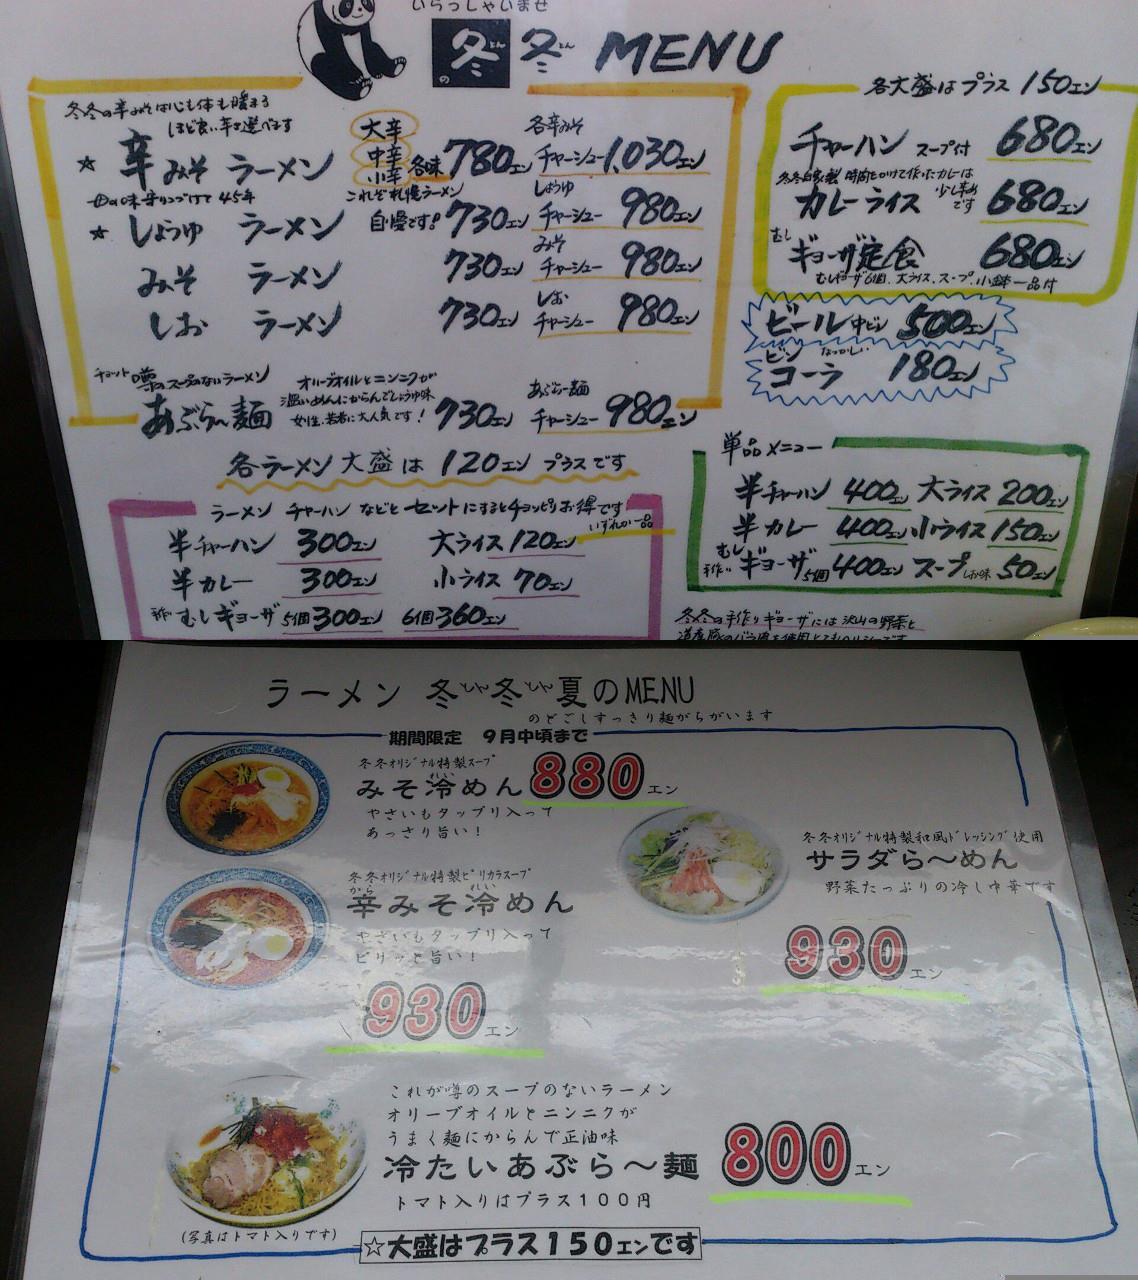 いらっしゃいませ
の 冬とん 冬とん MENU
冬冬の辛みそは心も体も暖まる
ほど良い辛さ選べます
☆ 辛みそ ラーメン 大辛 中辛 小辛 各味 780エン 各辛みそ チャーシュー 1,030エン
の味守りつづけて45年
これぞ札幌ラーメン
☆ しょうゆ ラーメン 自慢です。 730エン しょうゆ チャーシュー 980エン
みそ ラーメン 730エン みそ チャーシュー 980エン
しお ラーメン 730エン しお チャーシュー 980エン
チョット噂のスープのないラーメン
オリーブオイルとニンニクが
温いめんにからんでしょうゆ味
女性、若者に大人気です!
あぶら〜麺 730エン あぶら〜麺 チャーシュー 980エン
各ラーメン大盛は120エンプラスです
ラーメン チャーハンなどとセットにするとチョッピリお得です
いずれか一品
半チャーハン 300エン 大ライス 120エン
半カレー 300エン 小ライス 70エン
手作り むしギョーザ 5個 300エン 6個 360エン
各大盛はプラス 150エン
チャーハン スープ付 680エン
冬冬自家製 時間をかけて作ったカレーは
少し辛めです
カレーライス 680エン
むしギョーザ定食 680エン
むしギョーザ6個、大ライス、スープ、小鉢一品付
ビール 中ビン 500エン
ビン なつかしい
コーラ 180エン
単品メニュー
半チャーハン 400エン 大ライス 200エン
半カレー 400エン 小ライス 150エン
手作り むしギョーザ 5個 400エン スープ しお味 50エン
冬冬の手作りギョーザには沢山の野菜と
道産豚のバラ肉を使用とてもヘルシーです
ラーメン 冬とん冬とん夏のMENU
のどごしすっきり麺がちがいます
期間限定 9月中頃まで
冬冬オリジナル特製スープ
みそ冷れいめん 880エン
やさいもタップリ入って
あっさり旨い!
冬冬オリジナル特製ピリカラスープ
辛からみそ冷れいめん
やさいもタップリ入って
ピリッと旨い!
930エン
冬冬オリジナル特製和風ドレッシング使用
サラダら〜めん
野菜たっぷりの冷し中華です
930エン
これが噂のスープのないラーメン
オリーブオイルとニンニクが
うまく麺にからんで正油味
冷たいあぶら〜麺 800エン
トマト入りはプラス100円
(写真はトマト入りです)
☆大盛はプラス150エンです